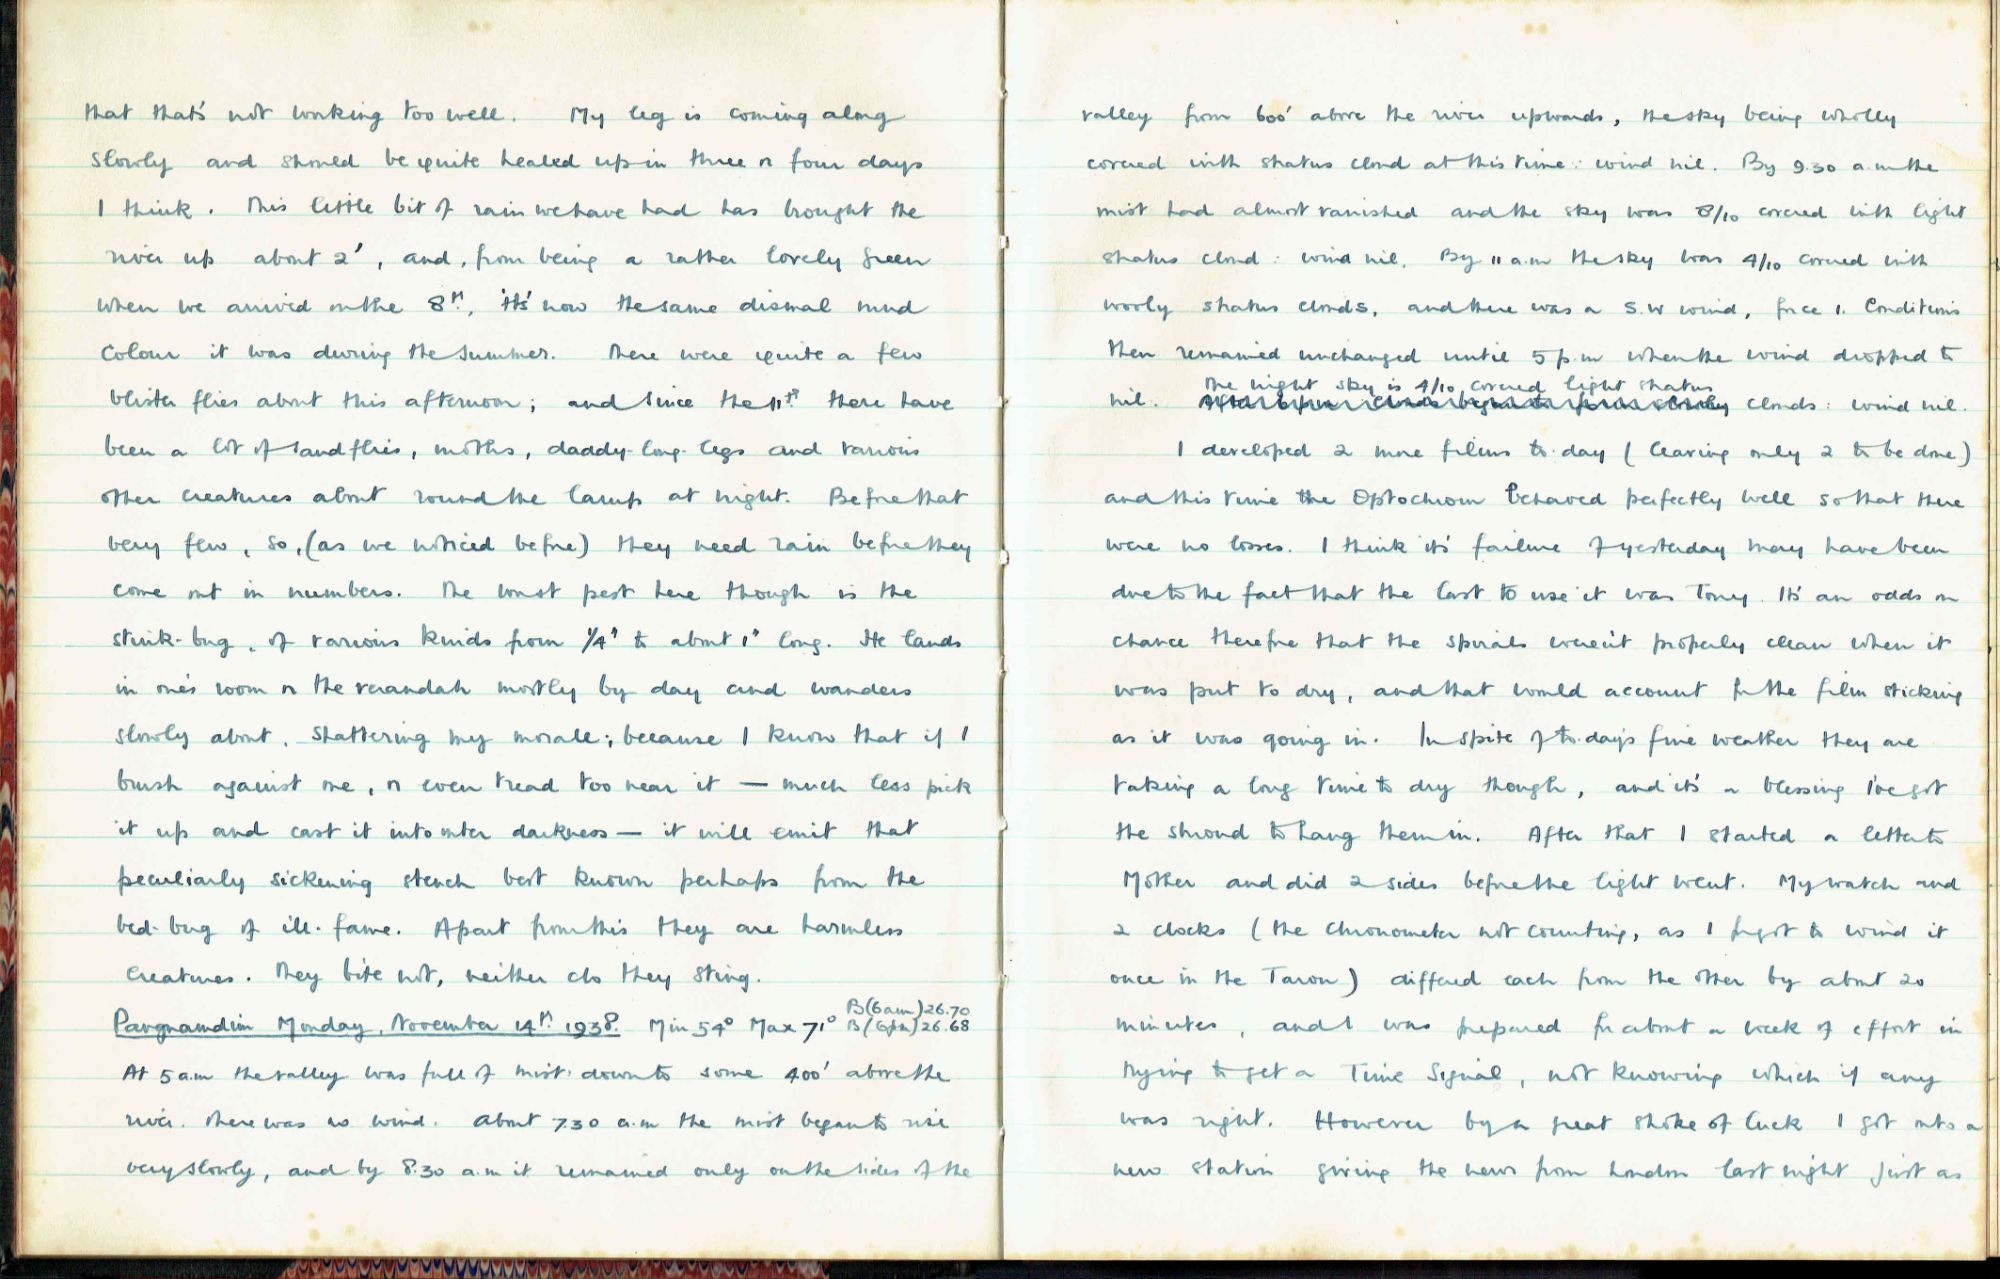 that that's not working too well. My leg is coming along
slowly and should be quite healed up in three or four days
I think. This little bit of rain we have had has brought the
river up about 2', and, from being a rather lovely green
when we arrived on the 8th, it's now the same dismal mud
colour it was during the summer. There were quite a few
blister flies about this afternoon; and since the 11th there have
been a lot of sandflies, moths, daddy-long-legs and various
other creatures about round the lamp at night. Before that
very few, so, (as we noticed before) they need rain before they
come out in numbers. The worst pest here though is the
stink-bug, of various kinds from 1/4" to about 1" long. He lands
in one's room or the verandah mostly by day and wanders
slowly about, shattering my morale; because I know that if I
brush against one, or even tread too near it — much less pick
it up and cast it into outer darkness — it will emit that
peculiarly sickening stench best known perhaps from the
bed-bug of ill-fame. Apart from this they are harmless
creatures. They bite not, neither do they sting.
Pangnamdim Monday, November 14th 1938. Min 54° Max 71° B(6am) 26.70
B(6pm) 26.68
At 5 a.m the valley was full of mist down to some 400' above the
river. There was no wind. About 7.30 a.m the mist began to rise
very slowly, and by 8.30 a.m it remained only on the sides of the
valley from 600' above the river upwards, the sky being wholly
covered with stratus cloud at this time: wind nil. By 9.30 a.m the
mist had almost vanished and the sky was 8/10 covered with light
stratus cloud: wind nil. By 11 a.m the sky was 4/10 covered with
wooly stratus clouds, and there was a S.W wind, force 1. Conditions
then remained unchanged until 5 p.m when the wind dropped to
The night sky is 4/10 covered light stratus
nil. clouds: wind nil.
I developed 2 more films to-day (leaving only 2 to be done)
and this time the Optochrom behaved perfectly well so that there
were no losses. I think it's failure of yesterday may have been
due to the fact that the last to use it was Tony. It's an odds on
chance therefore that the spirals weren't properly clean when it
was put to dry, and that would account for the film sticking
as it was going in. In spite of to-day's fine weather they are
taking a long time to dry though, and it's a blessing I've got
the shroud to hang them in. After that I started a letter to
Mother and did 2 sides before the light went. My watch and
2 clocks (the chronometer not counting, as I forgot to wind it
once in the Taron) differed each from the other by about 20
minutes, and I was prepared for about a week of effort in
trying to get a Time Signal, not knowing which if any
was right. However by a great stroke of luck I got onto a
new station giving the news from London last night just as